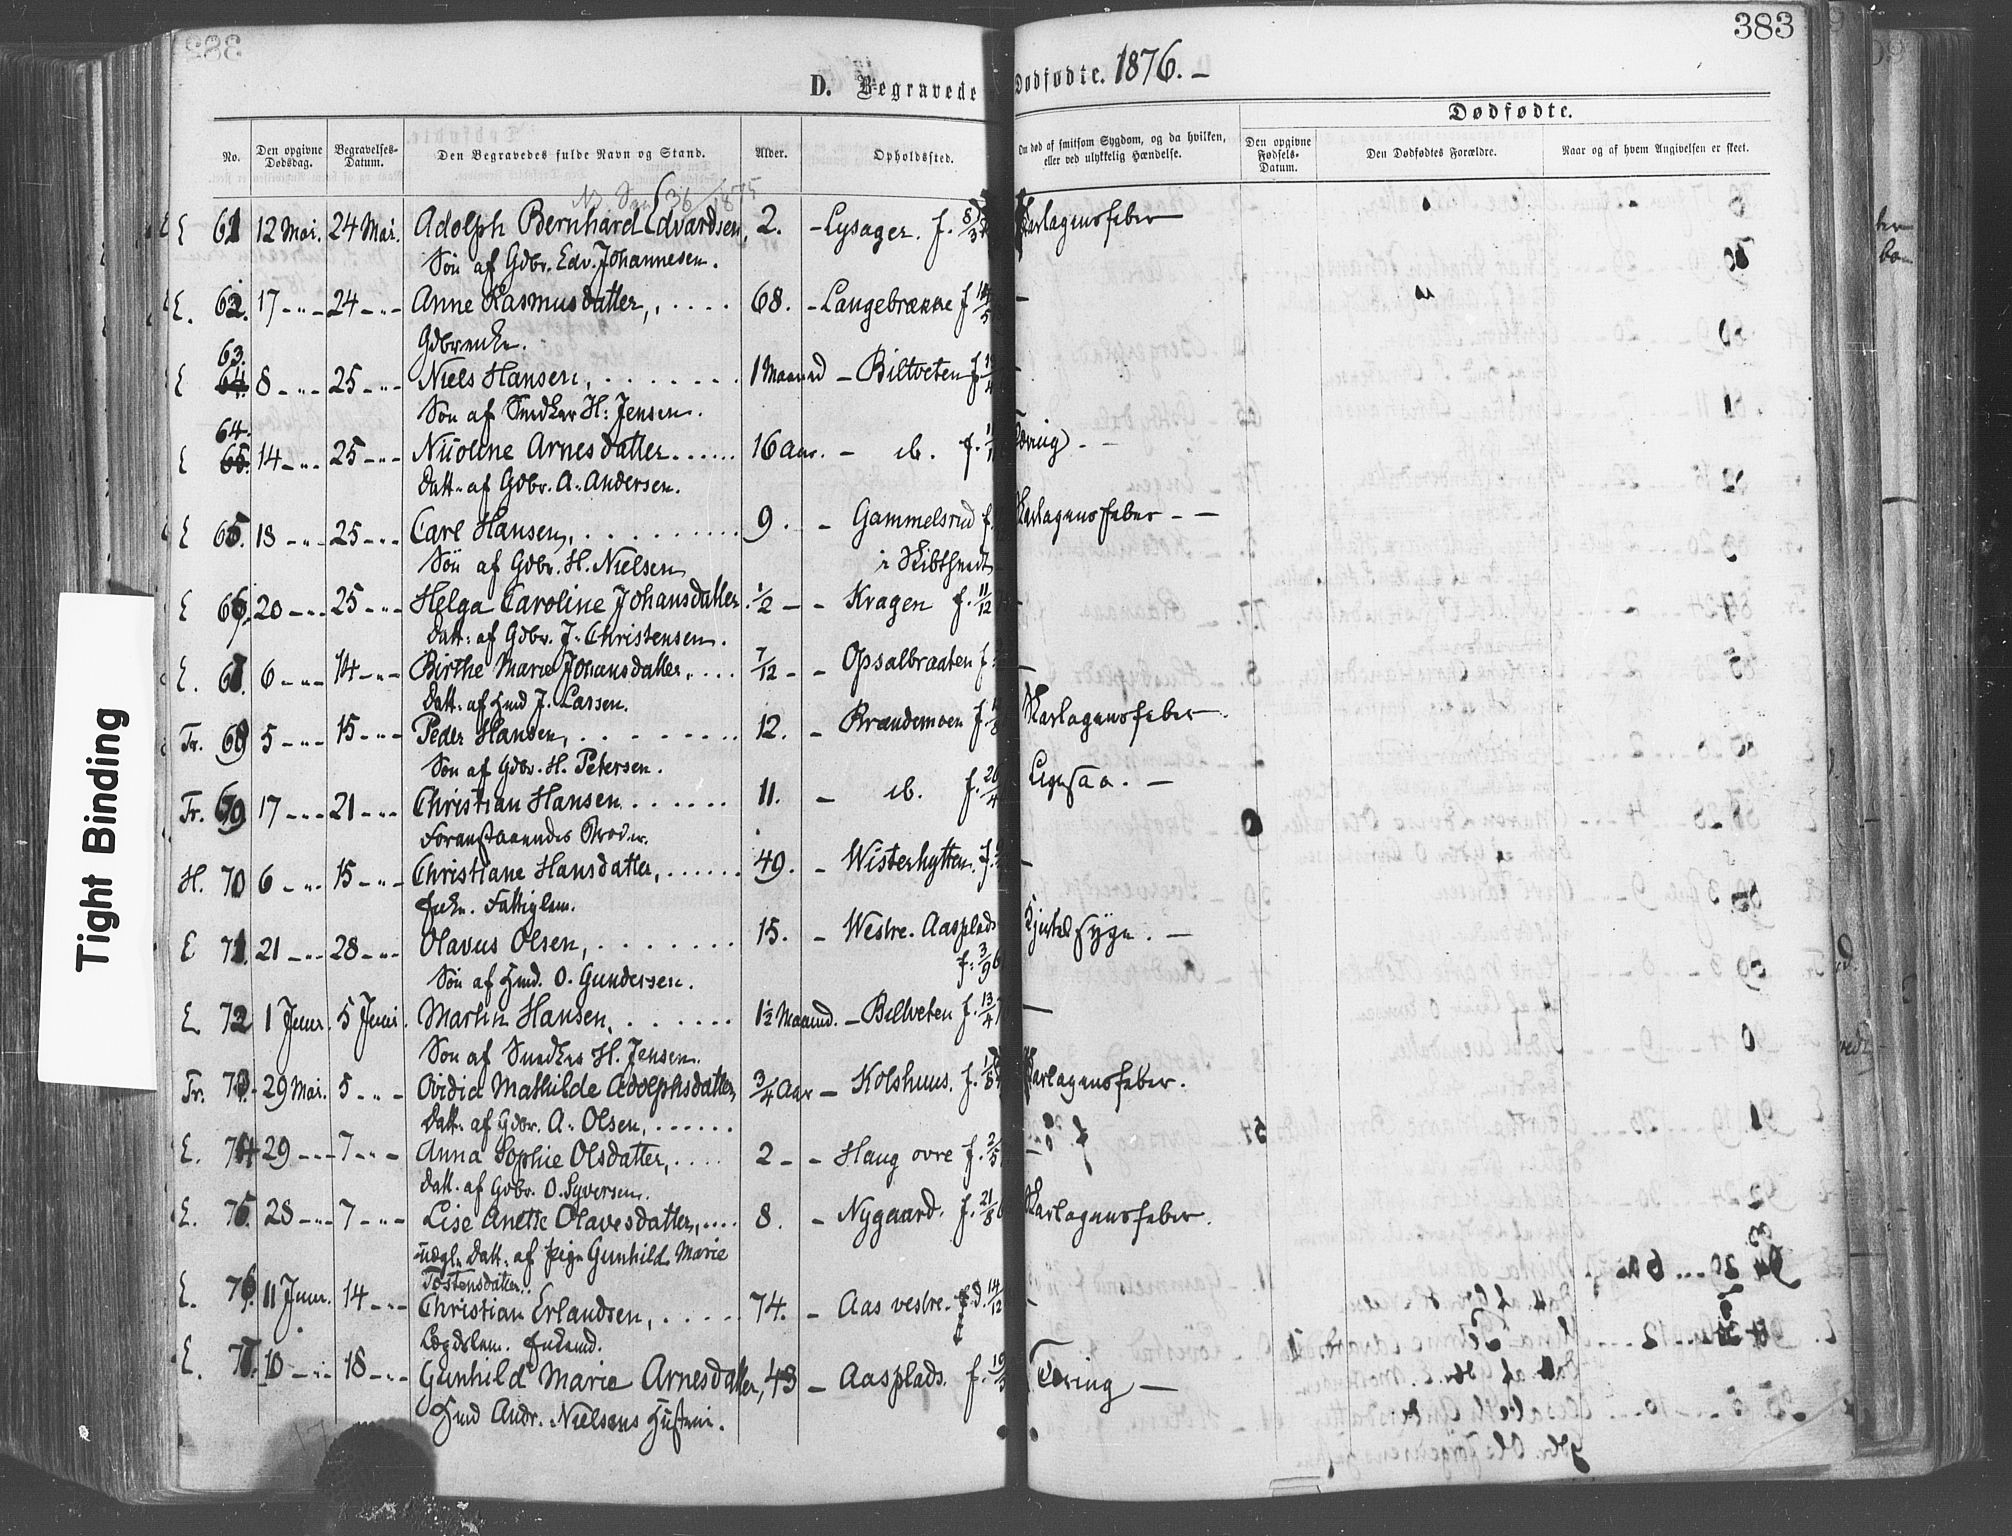 383
D. Begravede
Dødfødte. 1876. –
Dødfødte.
No.
Den opgivne Dødsdag.
Begravelses-Datum.
Den Begravedes fulde Navn og Stand.
Alder.
Opholdsted.
Om død af smitsom Sygdom, og da hvilken, eller ved ulykkelig Hændelse.
Den opgivne Fødsels-Datum.
Den Dødfødtes Forældre.
Naar og af hvem Angivelsen er skeet.
36/1875
E 61 12 Mai. 24 Mai. Adolph Bernhard Edvardsen, 2. – Lysager. f. 8/3 Skarlagensfeber
Søn af Gdbr. Edv. Johannesen.
E. 62. 17 – " – 24 – " – Anne Rasmusdatter, . . . . 68. – Langebrække f. –
Gdbrenke.
63.
E 64. 8 – " – 25 – " – Niels Hansen, . . . . . . . 1 Maaned – Biltveten f. –
Søn af Snedker H: Jensen.
64.
E 65. 14 – " – 25 – " – Nicoline Arnesdatter . . . . . . 16 Aar. – ib. f. Tæring) – –
Datt. af Gdbr. A. Andersen.
E 65. 18 – " – 25 – " – Carl Hansen, . . . . . . . . . 9. – Gammelsrud f. Skarlagensfeber – –
Søn af Gdbr. H. Nielsen i
E 66. 20 – " – 25 – " – Helga Caroline Johansdatter. 1/2 – – Kragen f. 11/12
Datt: af Gdbr. J. Christensen.
E. 67. 6 – " – 14 – " – Birthe Marie Johansdatter. . . . . 7/12 – – Opsalbraaten f. –
Datt: af Hmd J. Larsen.
Fr. 68 5 – " – 15 – " – Peder Hansen, . . . . . . . . 12. – Brændemoen f. Skarlagensfeber.
Søn af Gdbr. H. Petersen.
Fr. 69 17 – " – 21 – " – Christian Hansen . . . . . . 11. – ib. f. 26/4 Ligesaa. –
Foranstaaendes Broder.
H. 70 6 – " – 15 – " – Christiane Hansdatter, . . . . . . 49. – Wisterhytten. f. –
Enke. Fattiglem.
E 71. 21 – " – 28 – " – Olavus Olsen, . . . . . . . 15. – Westre. Aasplads Hjertesyge. –
Søn af Hmd. O. Gundersen. f. 3/9 6
E. 72 1 Juni. 5 Juni. Martin Hansen, . . . . . . 1½ Maaned. – Biltveten f. 13/4 –
Søn af Snedker H. Jensen.
Fr. 73. 29 Mai. 5 – " – Ovidia Mathilde Adolphsdatter, 3/4 Aar – Kolshuus. f. 1/8 Skarlagensfeber.
Datt. af Gdbr. A. Olsen, . . . . . .
E. 74 29 – " – 7 – " – Anna Sophie Olsdatter, . . . . 2 – – Haug øvre f. 2/5 –
Datt. af Gdbr. O. Syversen.
E. 75 28 – " – 7 – " – Lise Anette Olavesdatter, . . . . 8. – Nygaard. f. 21/8 6 Skarlagensfeber.
uægt. Datt. af Pige Gunhild Marie
Tostensdatter.
E. 76. 11 Juni. 14 – " – Christian Erlandsen, . . . . . 74. – Aas vestre. f. d. 14/12 –
Lægdslem. Enkemd.
E. 77. 10 – " – 18 – " – Gunhild Marie Arnesdatter, 43 – Aasplads. f. Tæring –
Hmd Andr. Nielsens Hustru.
Tight Binding